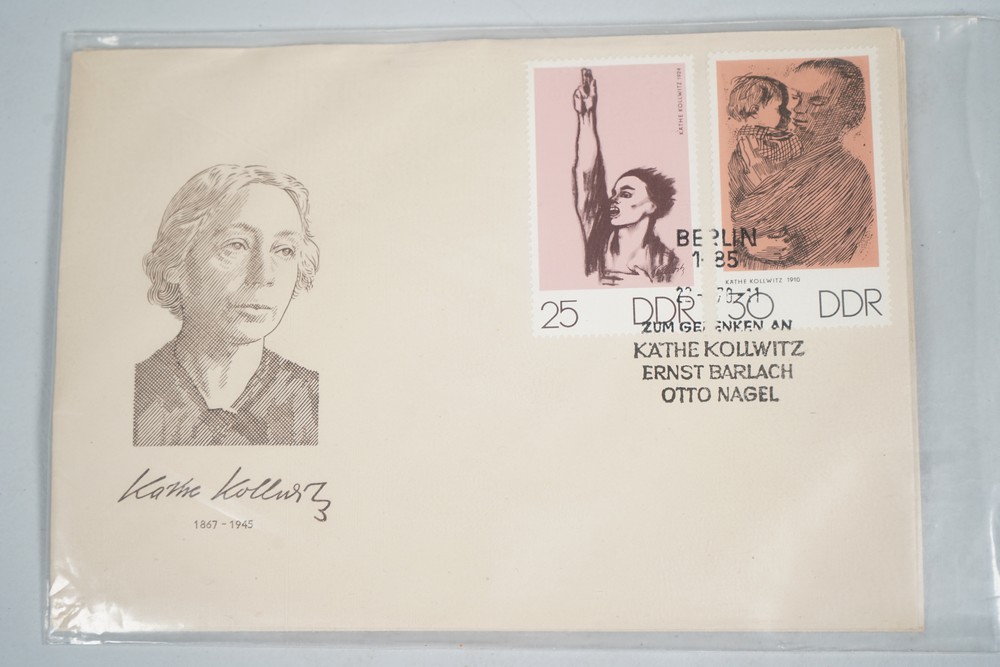 Käthe Kollwitz
1867 - 1945
KÄTHE KOLLWITZ 1924
25 DDR
KÄTHE KOLLWITZ 1910
30 DDR
BERLIN
85
ZUM GEDENKEN AN
KÄTHE KOLLWITZ
ERNST BARLACH
OTTO NAGEL